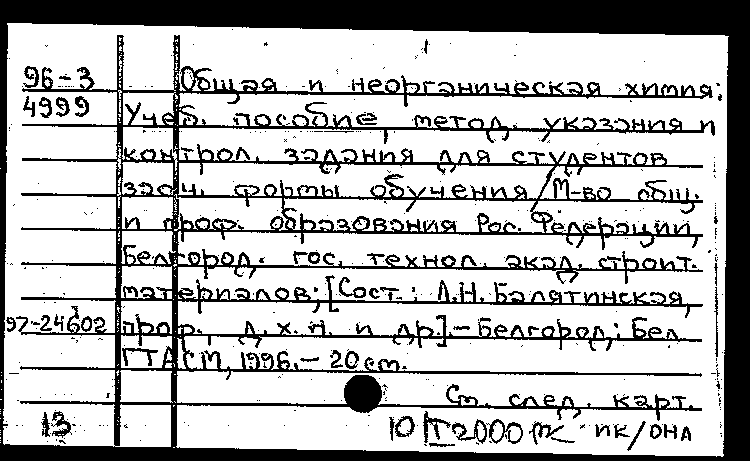 96-3 Общая и неорганическая химия:
4999 Учеб. пособие, метод. указания и
контрол. задания для студентов
заоч. формы обучения/М-во общ.
и проф. образования Рос. Федерации,
Белгород. гос. технол. акад. строит.
материалов; [Сост.: Л.Н. Балятинская,
97-24602 проф., д.х.н. и др].- Белгород,: Бел
ГТАСМ, 1996.- 20 см.
См. след. карт.
13 10 I 2000 ПК/ОНА